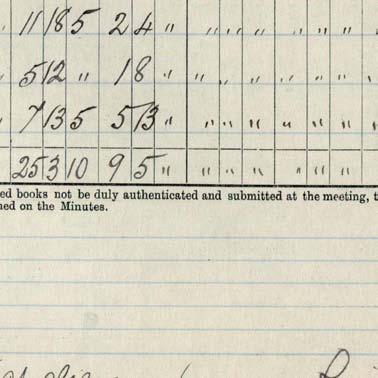 " 11 18 5 2 4 " " " " " " " "
5 12 " 1 8 " " " " " " " "
" 7 13 5 5 13 " " " " " " " "
25 3 10 9 5 " " " " " " "
ed books not be duly authenticated and submitted at the meeting, t
ned on the Minutes.